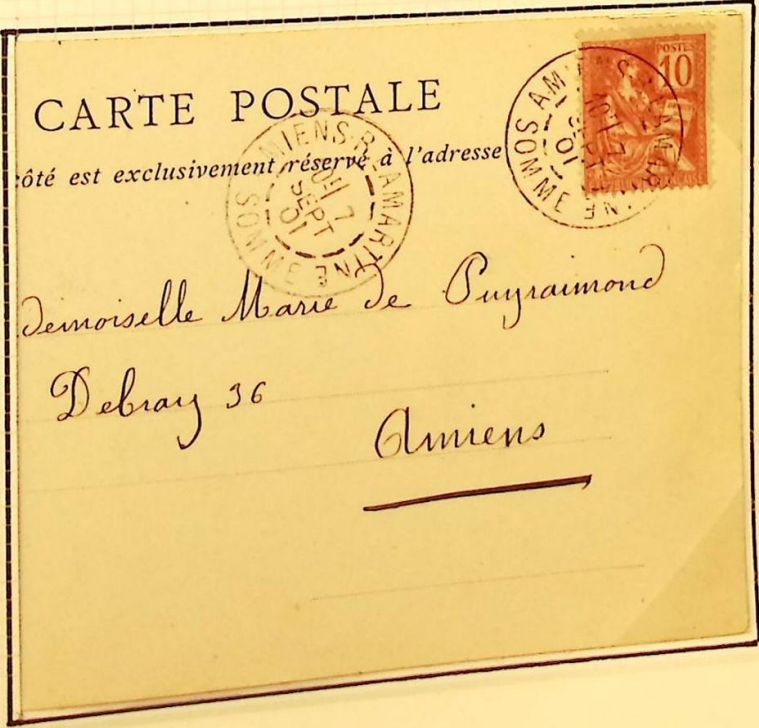 CARTE POSTALE
côté est exclusivement réservé à l'adresse
AMIENS-R.LAMARTINE
7
SEPT
01
SOMME
POSTES
10
AMIENS
7
SEPT
01
SOMME
demoiselle Marie de Puyraimond
Debray 36
Amiens